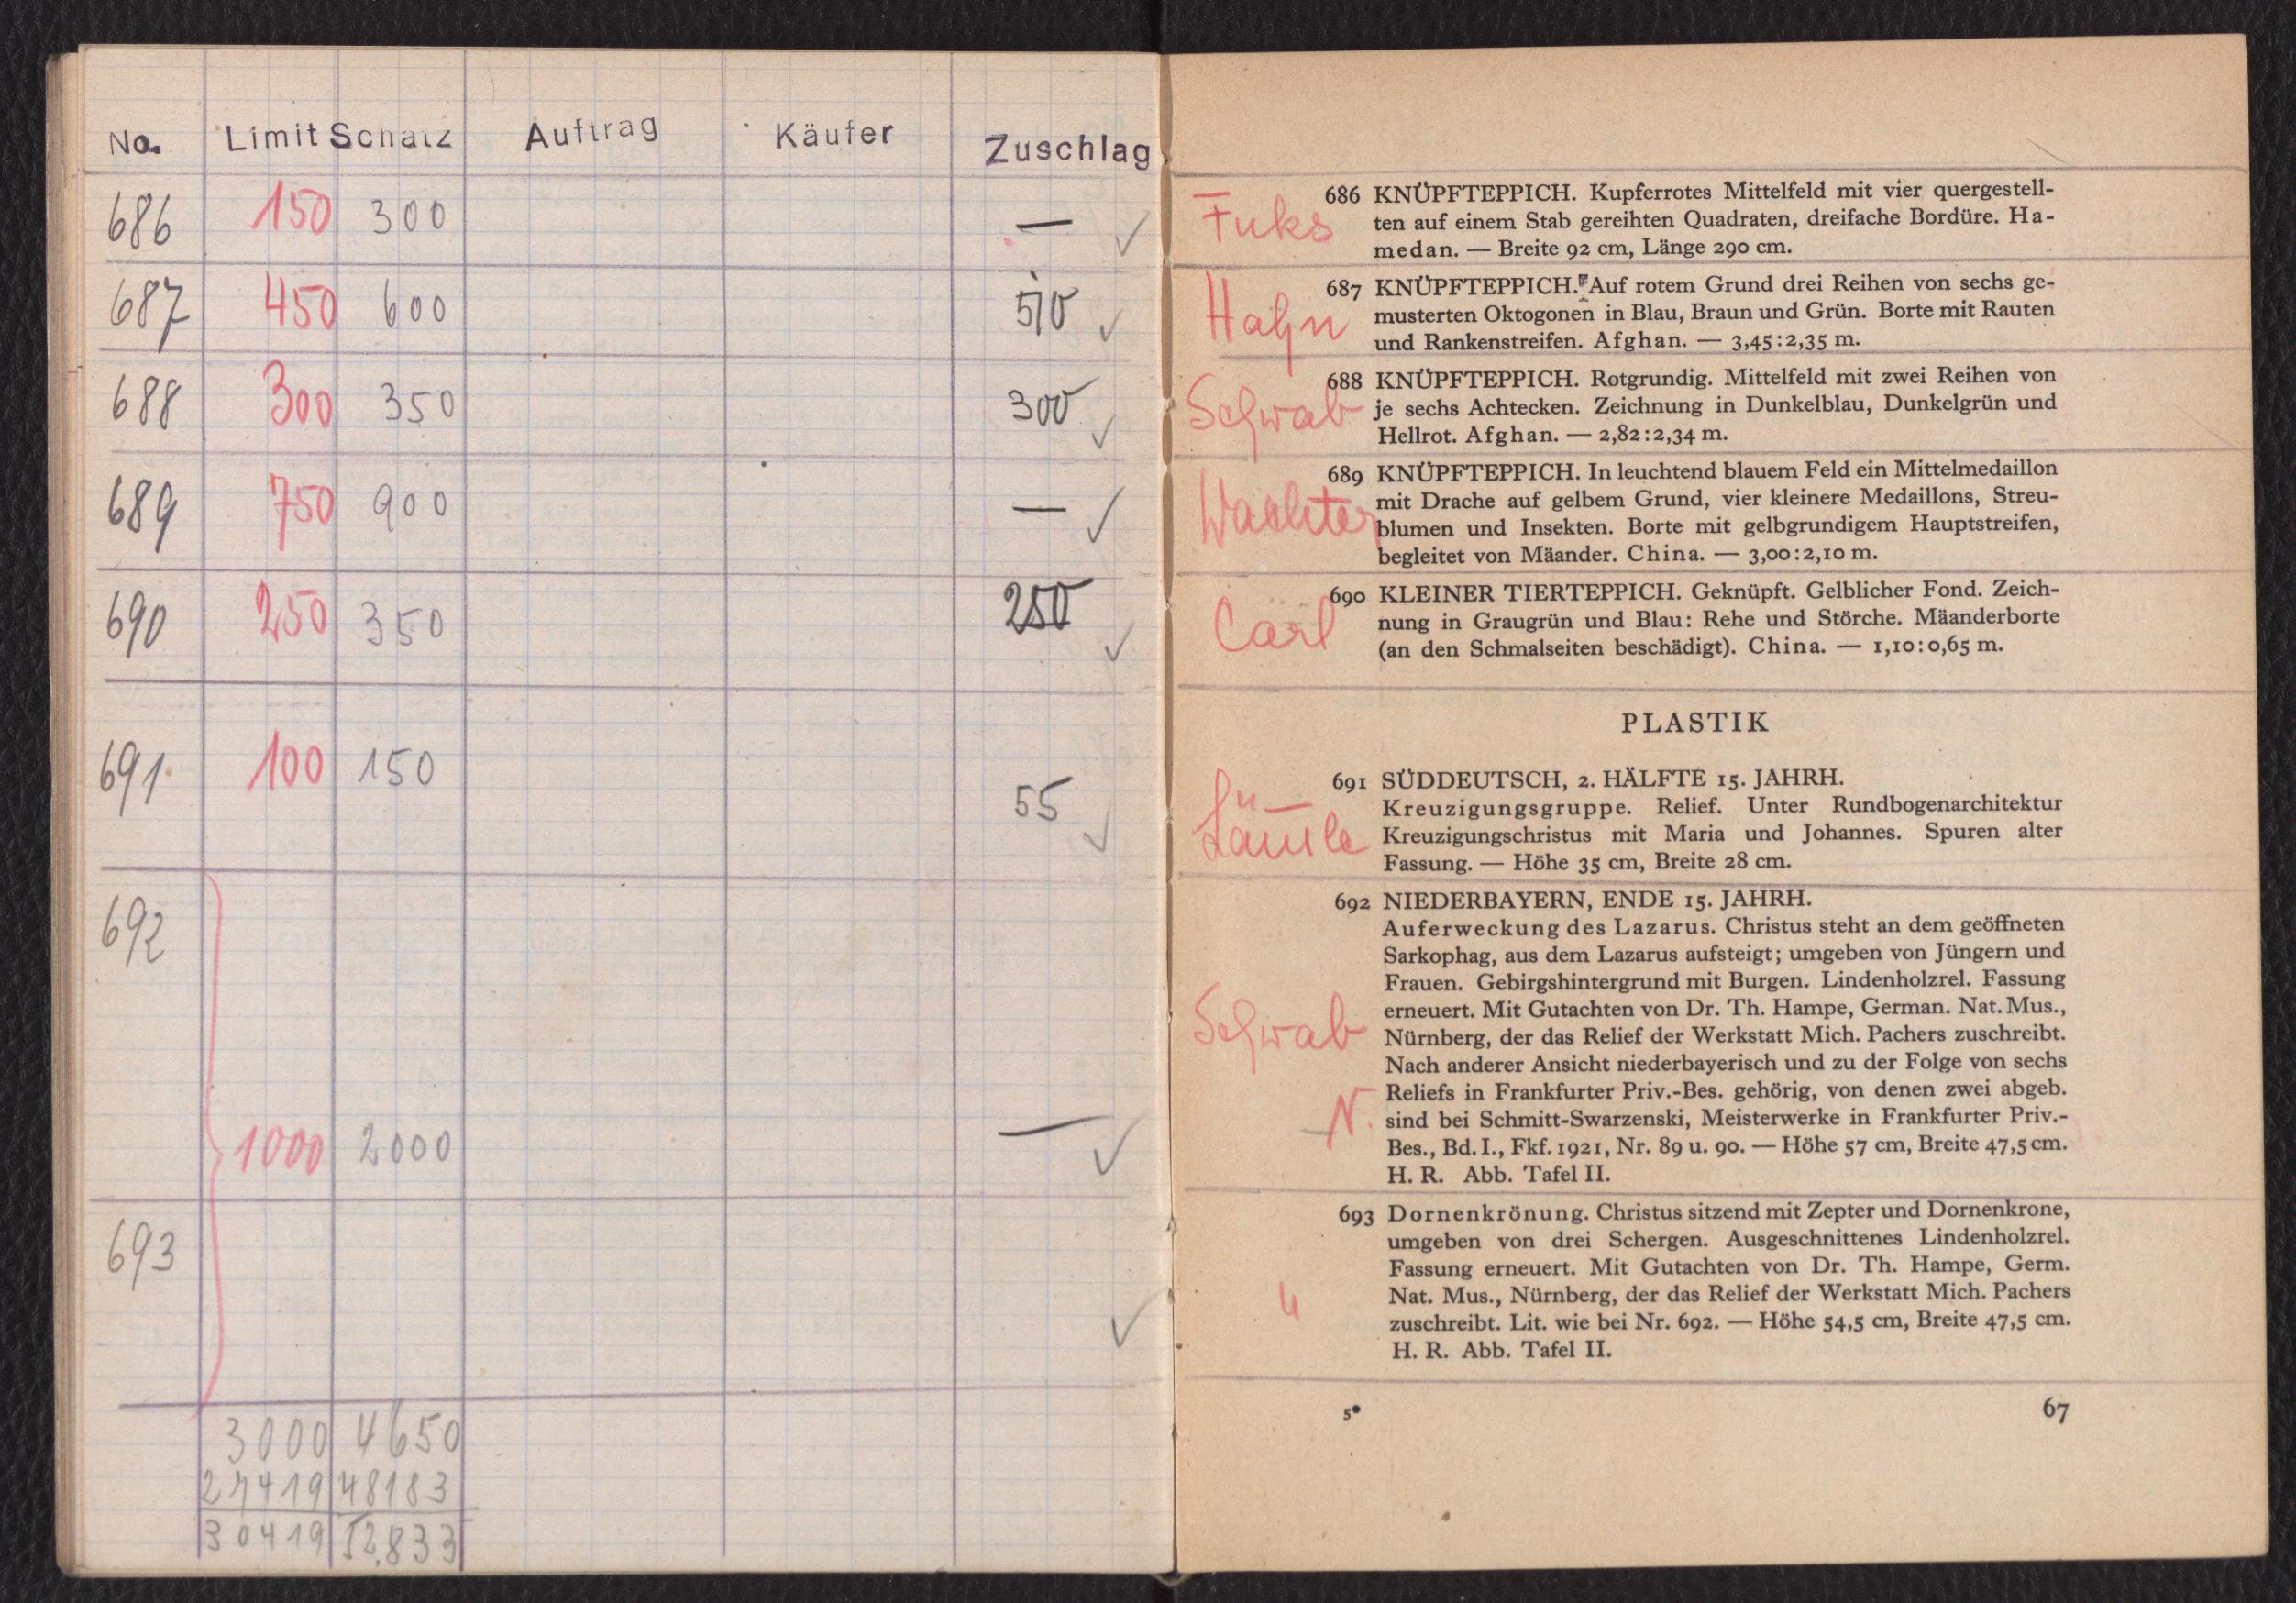 No. Limit Schatz Auftrag Käufer Zuschlag
686 150 300 — ✓
687 450 600 510 ✓
688 300 350 300 ✓
689 750 900 — ✓
690 250 350 250 ✓
691 100 150 55 ✓
692
1000 2000 — ✓
693
✓
3000 4650
27419 48183
30419 52.833
Fuks
686 KNÜPFTEPPICH. Kupferrotes Mittelfeld mit vier quergestell-
ten auf einem Stab gereihten Quadraten, dreifache Bordüre. Ha-
medan. — Breite 92 cm, Länge 290 cm.
Hahn
687 KNÜPFTEPPICH. Auf rotem Grund drei Reihen von sechs ge-
musterten Oktogonen in Blau, Braun und Grün. Borte mit Rauten
und Rankenstreifen. Afghan. — 3,45:2,35 m.
Schwab
688 KNÜPFTEPPICH. Rotgrundig. Mittelfeld mit zwei Reihen von
je sechs Achtecken. Zeichnung in Dunkelblau, Dunkelgrün und
Hellrot. Afghan. — 2,82:2,34 m.
Wachter
689 KNÜPFTEPPICH. In leuchtend blauem Feld ein Mittelmedaillon
mit Drache auf gelbem Grund, vier kleinere Medaillons, Streu-
blumen und Insekten. Borte mit gelbgrundigem Hauptstreifen,
begleitet von Mäander. China. — 3,00:2,10 m.
Carl
690 KLEINER TIERTEPPICH. Geknüpft. Gelblicher Fond. Zeich-
nung in Graugrün und Blau: Rehe und Störche. Mäanderborte
(an den Schmalseiten beschädigt). China. — 1,10:0,65 m.
PLASTIK
691 SÜDDEUTSCH, 2. HÄLFTE 15. JAHRH.
Kreuzigungsgruppe. Relief. Unter Rundbogenarchitektur
Kreuzigungschristus mit Maria und Johannes. Spuren alter
Fassung. — Höhe 35 cm, Breite 28 cm.
692 NIEDERBAYERN, ENDE 15. JAHRH.
Auferweckung des Lazarus. Christus steht an dem geöffneten
Sarkophag, aus dem Lazarus aufsteigt; umgeben von Jüngern und
Frauen. Gebirgshintergrund mit Burgen. Lindenholzrel. Fassung
erneuert. Mit Gutachten von Dr. Th. Hampe, German. Nat. Mus.,
Schwab
Nürnberg, der das Relief der Werkstatt Mich. Pachers zuschreibt.
Nach anderer Ansicht niederbayerisch und zu der Folge von sechs
Reliefs in Frankfurter Priv.-Bes. gehörig, von denen zwei abgeb.
N.
sind bei Schmitt-Swarzenski, Meisterwerke in Frankfurter Priv.-
Bes., Bd. I., Fkf. 1921, Nr. 89 u. 90. — Höhe 57 cm, Breite 47,5 cm.
H. R. Abb. Tafel II.
693 Dornenkrönung. Christus sitzend mit Zepter und Dornenkrone,
umgeben von drei Schergen. Ausgeschnittenes Lindenholzrel.
Fassung erneuert. Mit Gutachten von Dr. Th. Hampe, Germ.
Nat. Mus., Nürnberg, der das Relief der Werkstatt Mich. Pachers
zuschreibt. Lit. wie bei Nr. 692. — Höhe 54,5 cm, Breite 47,5 cm.
H. R. Abb. Tafel II.
5* 67